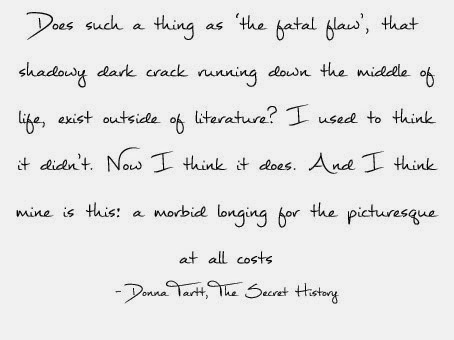 Does such a thing as 'the fatal flaw', that
shadowy dark crack running down the middle of
life, exist outside of literature? I used to think
it didn't. Now I think it does. And I think
mine is this: a morbid longing for the picturesque
at all costs
- Donna Tartt, The Secret History